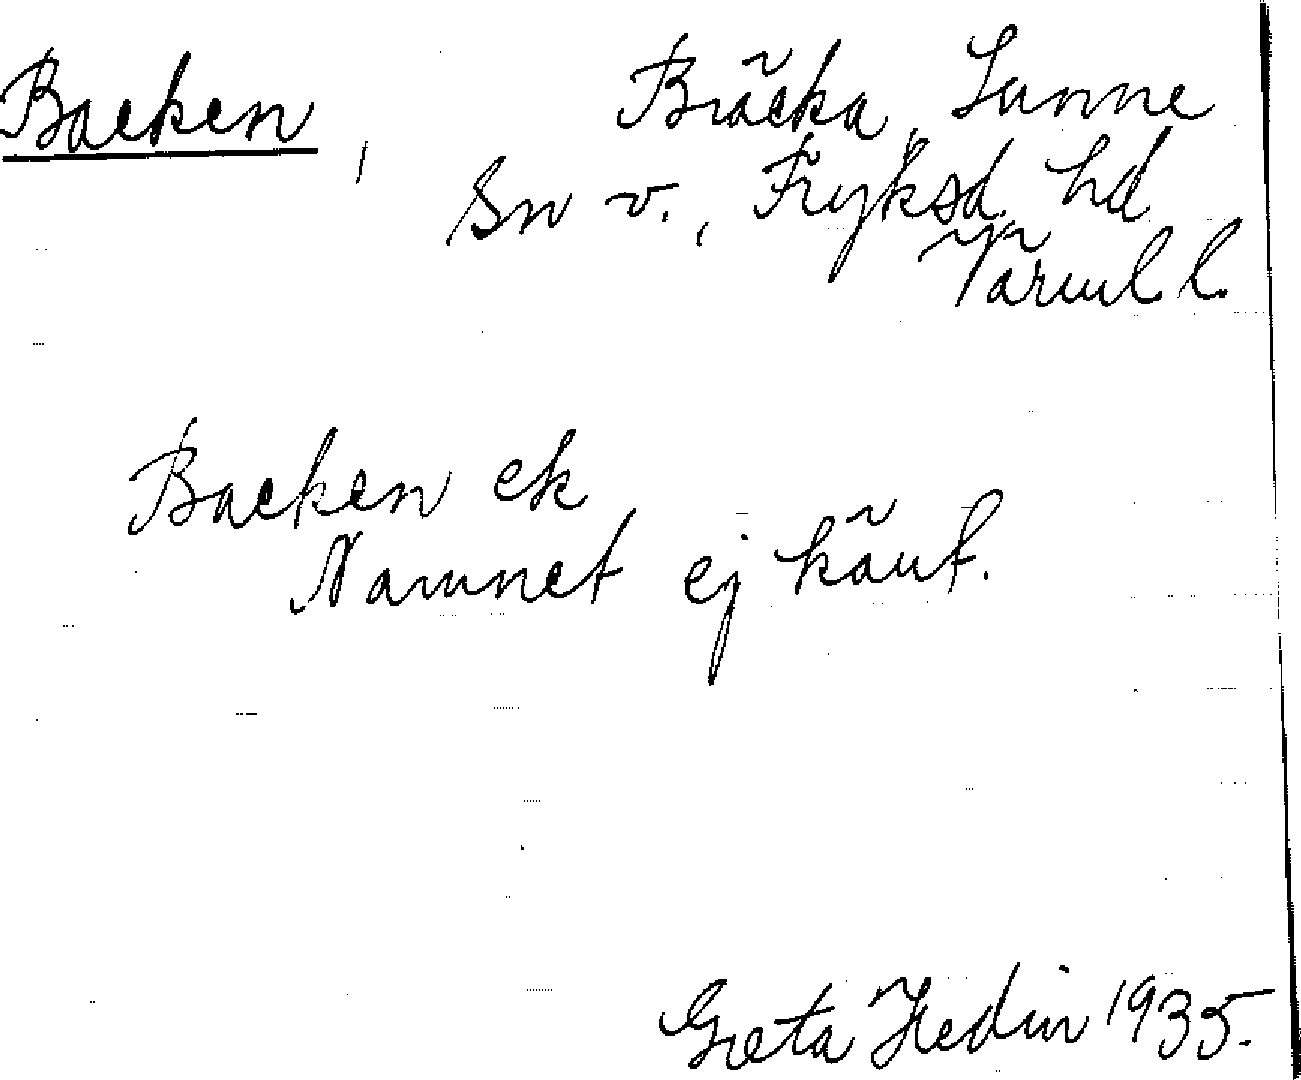 Backen, Bräcka, Sunne
sn v., Fryksd. hd
Värml. l.
Backen ek
Namnet ej känt.
Greta Hedin 1935.